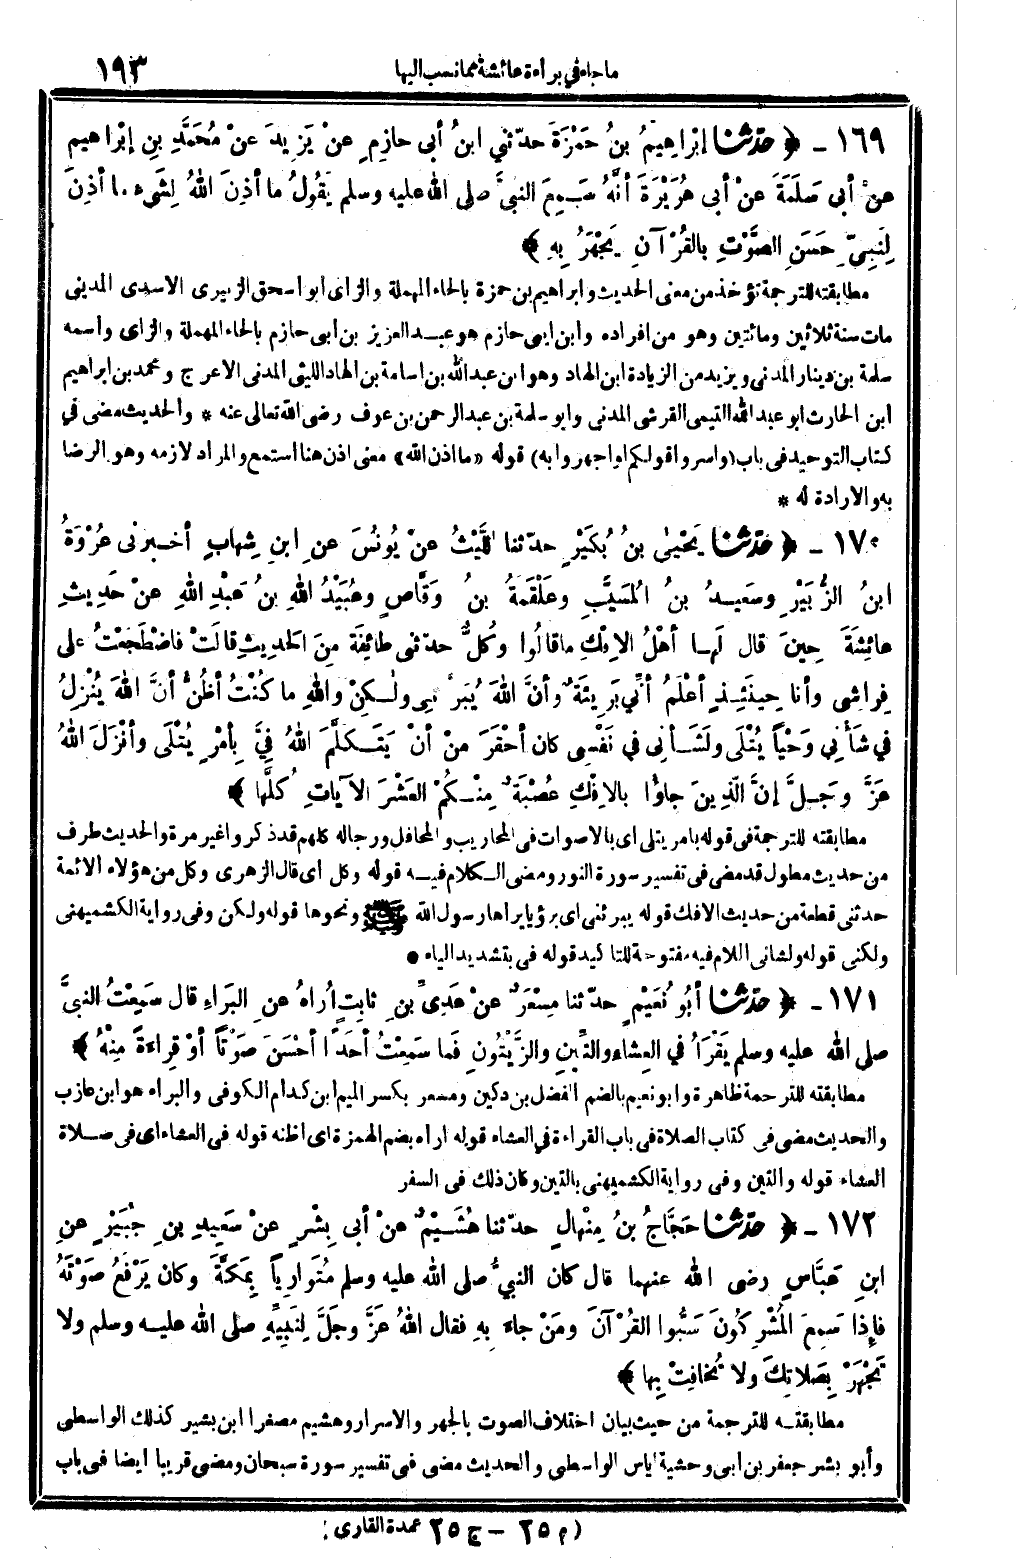 ما جاء في براءة عائشة مما نسب اليها ١٩٣
١٦٩ - ﴿ حدّثنا إبْرَاهِيمُ بنُ حَمْزَةَ حدّثني ابنُ أبى حازِمٍ عنْ يَزِيدَ عنْ مُحَمَّدِ بنِ إبْراهيم
عنْ أبى سَلَمَةَ عنْ أبى هُرَيْرَةَ أنَّهُ سَمِعَ النبيَّ صلى الله عليه وسلم يَقُولُ ما أذِنَ اللهُ لِشَيْءٍ ما أذِنَ
لِنَبِيٍّ حَسَنِ الصَّوْتِ بالقُرْآنِ يَجْهَرُ بِهِ ﴾
مطابقته للترجمة تؤخذ من معنى الحديث وابراهيم بن حمزة بالحاء المهملة والزاى أبو اسحق الزبيرى الاسدى المدنى
مات سنة ثلاثين ومائتين وهو من افراده وابن ابى حازم هو عبد العزيز بن أبى حازم بالحاء المهملة والزاى واسمه
سلمة بن دينار المدنى ويزيد من الزيادة ابن الهاد وهو ابن عبدالله بن اسامة بن الهاد الليثى المدنى الاعرج ومحمد بن ابراهيم
ابن الحارث ابو عبد الله التيمى القرشى المدنى وابو سلمة بن عبد الرحمن بن عوف رضى الله تعالى عنه * والحديث مضى في
كتاب التوحيد فى باب (واسروا قولكم او اجهروا به) قوله «ما اذن الله» معنى اذن هنا استمع والمراد لازمه وهو الرضا
به والارادة له *
١٧٠ - ﴿ حدّثنا يَحْيىٰ بنُ بُكَيْرٍ حدّثنا اللَّيْثُ عنْ يُونُسَ عنِ ابنِ شِهابٍ أخبرنى عُرْوَةُ
ابنُ الزُّبَيْرِ وسَعِيدُ بنُ المُسَيَّبِ وعَلْقَمَةُ بنُ وَقَّاصٍ وعُبَيْدُ اللهِ بنُ عَبْدِ اللهِ عنْ حَدِيثِ
عائِشَةَ حِينَ قال لَها أهْلُ الإفْكِ ما قالُوا وكُلٌّ حدّثنى طائِفَةً مِنَ الحَدِيثِ قالَتْ فاضْطَجَعْتُ على
فِراشِى وأنا حِينَئِذٍ أعْلَمُ أنِّي بَرِيئَةٌ وأنَّ اللهَ يُبَرِّئُنِي ولٰكِنْ واللهِ ما كُنْتُ أظُنُّ أنَّ اللهَ يُنْزِلُ
في شأْنِي وَحْياً يُتْلَى ولَشَأنِى في نَفْسِى كان أحْقَرَ مِنْ أنْ يَتَكَلَّمَ اللهُ فِيَّ بِأمْرٍ يُتْلَى وأنْزَلَ اللهُ
عَزَّ وَجَلَّ إنَّ الّذِينَ جاؤُا بالإفْكِ عُصْبَةٌ مِنْكُمْ العَشْرَ الآياتِ كُلَّها ﴾
مطابقته للترجمة فى قوله بامر يتلى اى بالاصوات فى المحاريب والمحافل ورجاله كلهم قد ذكروا غير مرة والحديث طرف
من حديث مطول قد مضى فى تفسير سورة النور ومضى الكلام فيه قوله وكل اى قال الزهرى وكل من هؤلاء الائمة
حدثنى قطعة من حديث الافك قوله يبرئنى اى برؤيا يراها رسول الله ﷺ ونحوها قوله ولكن وفى رواية الكشميهنى
ولكنى قوله ولشانى اللام فيه مفتوحة للتاكيد قوله فى بتشديد الياء *
١٧١ - ﴿ حدّثنا أبُو نُعَيْمٍ حدّثنا مِسْعَرٌ عنْ عَدِىِّ بنِ ثابِتٍ أُراهُ عنِ البَرَاءِ قال سَمِعْتُ النبيَّ
صلى الله عليه وسلم يَقْرَأُ في العِشاءِ والتِّينِ والزَّيْتُونِ فَما سَمِعْتُ أحَدًا أحْسَنَ صَوْتاً أوْ قِراءةً مِنْهُ ﴾
مطابقته للترجمة ظاهرة وابو نعيم بالضم الفضل بن دكين ومسعر بكسر الميم ابن كدام الكوفى والبراء هو ابن عازب
والحديث مضى فى كتاب الصلاة فى باب القراءة في العشاء قوله اراه بضم الهمزة اى اظنه قوله فى العشاء اى فى صلاة
العشاء قوله والتين وفى رواية الكشميهنى بالتين وكان ذلك فى السفر
١٧٢ - ﴿ حدّثنا حَجَّاجُ بنُ مِنْهالٍ حدّثنا هُشَيْمٌ عنْ أبى بِشْرٍ عنْ سَعِيدِ بنِ جُبَيْرٍ عنِ
ابنِ عَبَّاسٍ رضى الله عنهما قال كان النبيُّ صلى الله عليه وسلم مُتَوارِياً بِمَكَّةَ وكان يَرْفَعُ صَوْتَهُ
فإِذا سَمِعَ المُشْرِكُونَ سَبُّوا القُرْآنَ ومَنْ جاءَ بِهِ فقال اللهُ عَزَّ وجَلَّ لِنَبِيِّهِ صلى الله عليه وسلم ولا
تَجْهَرْ بِصَلاتِكَ ولا تُخافِتْ بِها ﴾
مطابقته للترجمة من حيث بيان اختلاف الصوت بالجهر والاسرار وهشيم مصغرا ابن بشير كذلك الواسطى
وأبو بشر جعفر بن ابى وحشية اياس الواسطى والحديث مضى فى تفسير سورة سبحان ومضى قريبا ايضا فى باب
(م ٢٥ – ج ٢٥ عمدة القارى)